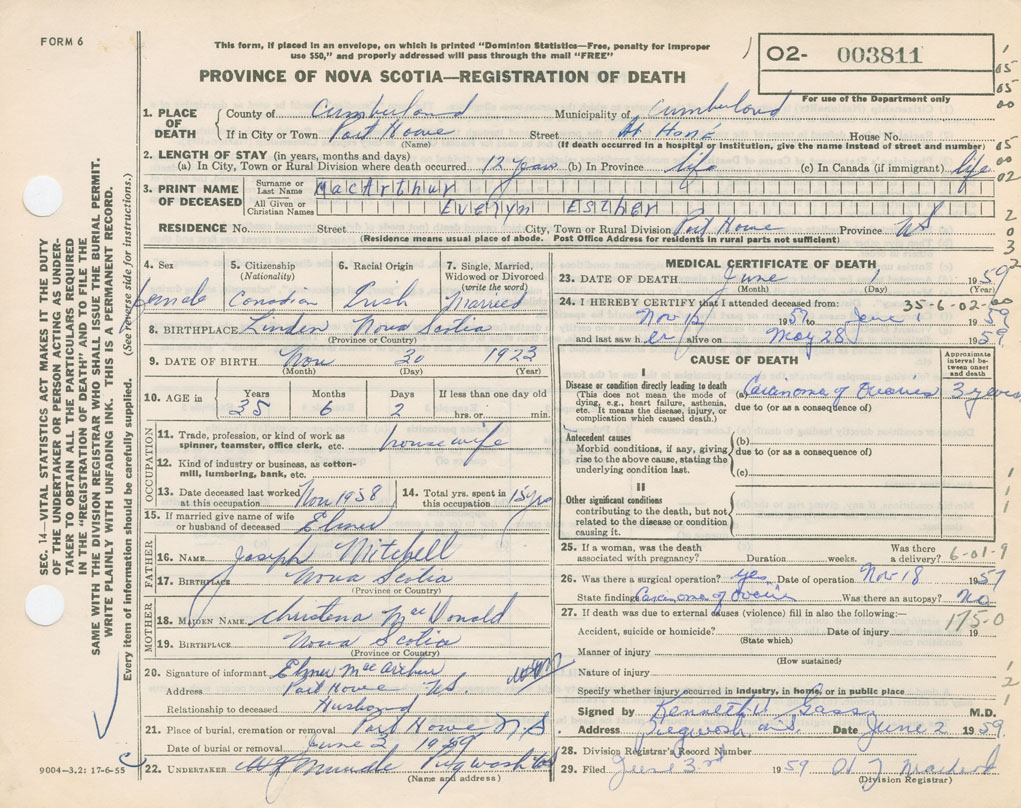 FORM 6
This form, if placed in an envelope, on which is printed "Dominion Statistics—Free, penalty for improper
use $50," and properly addressed will pass through the mail "FREE"
PROVINCE OF NOVA SCOTIA—REGISTRATION OF DEATH
02- 003811
For use of the Department only
1. PLACE OF DEATH County of Cumberland Municipality of Cumberland
If in City or Town Port Howe Street At Home House No.
(Name) (If death occurred in a hospital or institution, give the name instead of street and number)
2. LENGTH OF STAY (in years, months and days)
(a) In City, Town or Rural Division where death occurred 12 years (b) In Province life (c) In Canada (if immigrant) life
3. PRINT NAME OF DECEASED Surname or Last Name MacArthur
All Given or Christian Names Evelyn Esther
RESIDENCE No. Street City, Town or Rural Division Port Howe Province NS
(Residence means usual place of abode. Post Office Address for residents in rural parts not sufficient)
4. Sex 5. Citizenship (Nationality) 6. Racial Origin 7. Single, Married, Widowed or Divorced (write the word)
female Canadian Irish Married
8. BIRTHPLACE Linden Nova Scotia
(Province or Country)
9. DATE OF BIRTH Nov 30 1923
(Month) (Day) (Year)
10. AGE in Years Months Days If less than one day old
35 6 2 hrs. or min.
OCCUPATION
11. Trade, profession, or kind of work as spinner, teamster, office clerk, etc. housewife
12. Kind of industry or business, as cotton-mill, lumbering, bank, etc.
13. Date deceased last worked at this occupation Nov 1958 14. Total yrs. spent in this occupation 15 yrs
15. If married give name of wife or husband of deceased Elmer
FATHER
16. NAME Joseph Mitchell
17. BIRTHPLACE Nova Scotia
(Province or Country)
MOTHER
18. MAIDEN NAME Christena MacDonald
19. BIRTHPLACE Nova Scotia
(Province or Country)
20. Signature of informant Elmer MacArthur
Address Port Howe NS.
Relationship to deceased Husband
21. Place of burial, cremation or removal Port Howe, N.S
Date of burial or removal June 3 1959
22. UNDERTAKER Pugwash NS
(Name and address)
MEDICAL CERTIFICATE OF DEATH
23. DATE OF DEATH June 1 1959
(Month) (Day) (Year)
24. I HEREBY CERTIFY that I attended deceased from: 35-6-02-00
Nov 12 1957 to June 1 1959
and last saw her alive on May 28 1959.
CAUSE OF DEATH
Approximate interval between onset and death
I
Disease or condition directly leading to death (a) Carcinoma of Ovaries 3 years
(This does not mean the mode of dying, e.g., heart failure, asthenia, etc. It means the disease, injury, or complication which caused death.)
due to (or as a consequence of)
Antecedent causes
Morbid conditions, if any, giving rise to the above cause, stating the underlying condition last.
(b)
due to (or as a consequence of)
(c)
II
Other significant conditions
contributing to the death, but not related to the disease or condition causing it.
25. If a woman, was the death associated with pregnancy? Duration weeks. Was there a delivery? 6-01-9
26. Was there a surgical operation? yes Date of operation Nov 18 1957
State findings Carcinoma of Ovaries Was there an autopsy? No
27. If death was due to external causes (violence) fill in also the following:— 175-0
Accident, suicide or homicide? Date of injury 19
(State which)
Manner of injury
(How sustained)
Nature of injury
Specify whether injury occurred in industry, in home, or in public place
Signed by Kenneth Gass M.D.
Address Pugwash, N.S. Date June 2 1959.
28. Division Registrar's Record Number
29. Filed June 3rd 1959
(Division Registrar)
SEC. 14—VITAL STATISTICS ACT MAKES IT THE DUTY
OF THE UNDERTAKER OR PERSON ACTING AS UNDER-
TAKER TO OBTAIN ALL THE PARTICULARS REQUIRED
IN THE "REGISTRATION OF DEATH" AND TO FILE THE
SAME WITH THE DIVISION REGISTRAR WHO SHALL ISSUE THE BURIAL PERMIT.
WRITE PLAINLY WITH UNFADING INK. THIS IS A PERMANENT RECORD.
Every item of information should be carefully supplied. (See reverse side for instructions.)
9004—3.2: 17-6-55